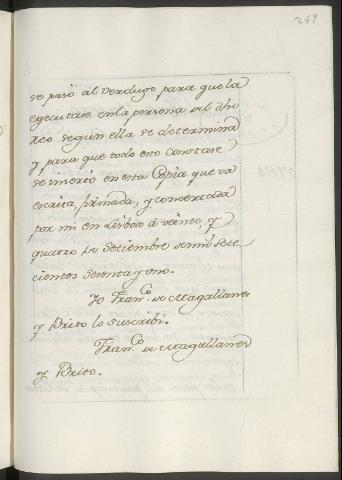 269
se pasó al verdugo para que la
egecutase en la persona del dho
Reo segun ella se determina
y para que todo esto constase
se inserió en esta Copia que va
escrita, firmada, y concertada
por mi en Lisboa à veinte, y
quatro de Setiembre de mil Sete
cientos sesenta y uno.
Yo Fran.co de Magallanes
y Brito lo suscribi.
Fran.co de Magallanes
y Brito.